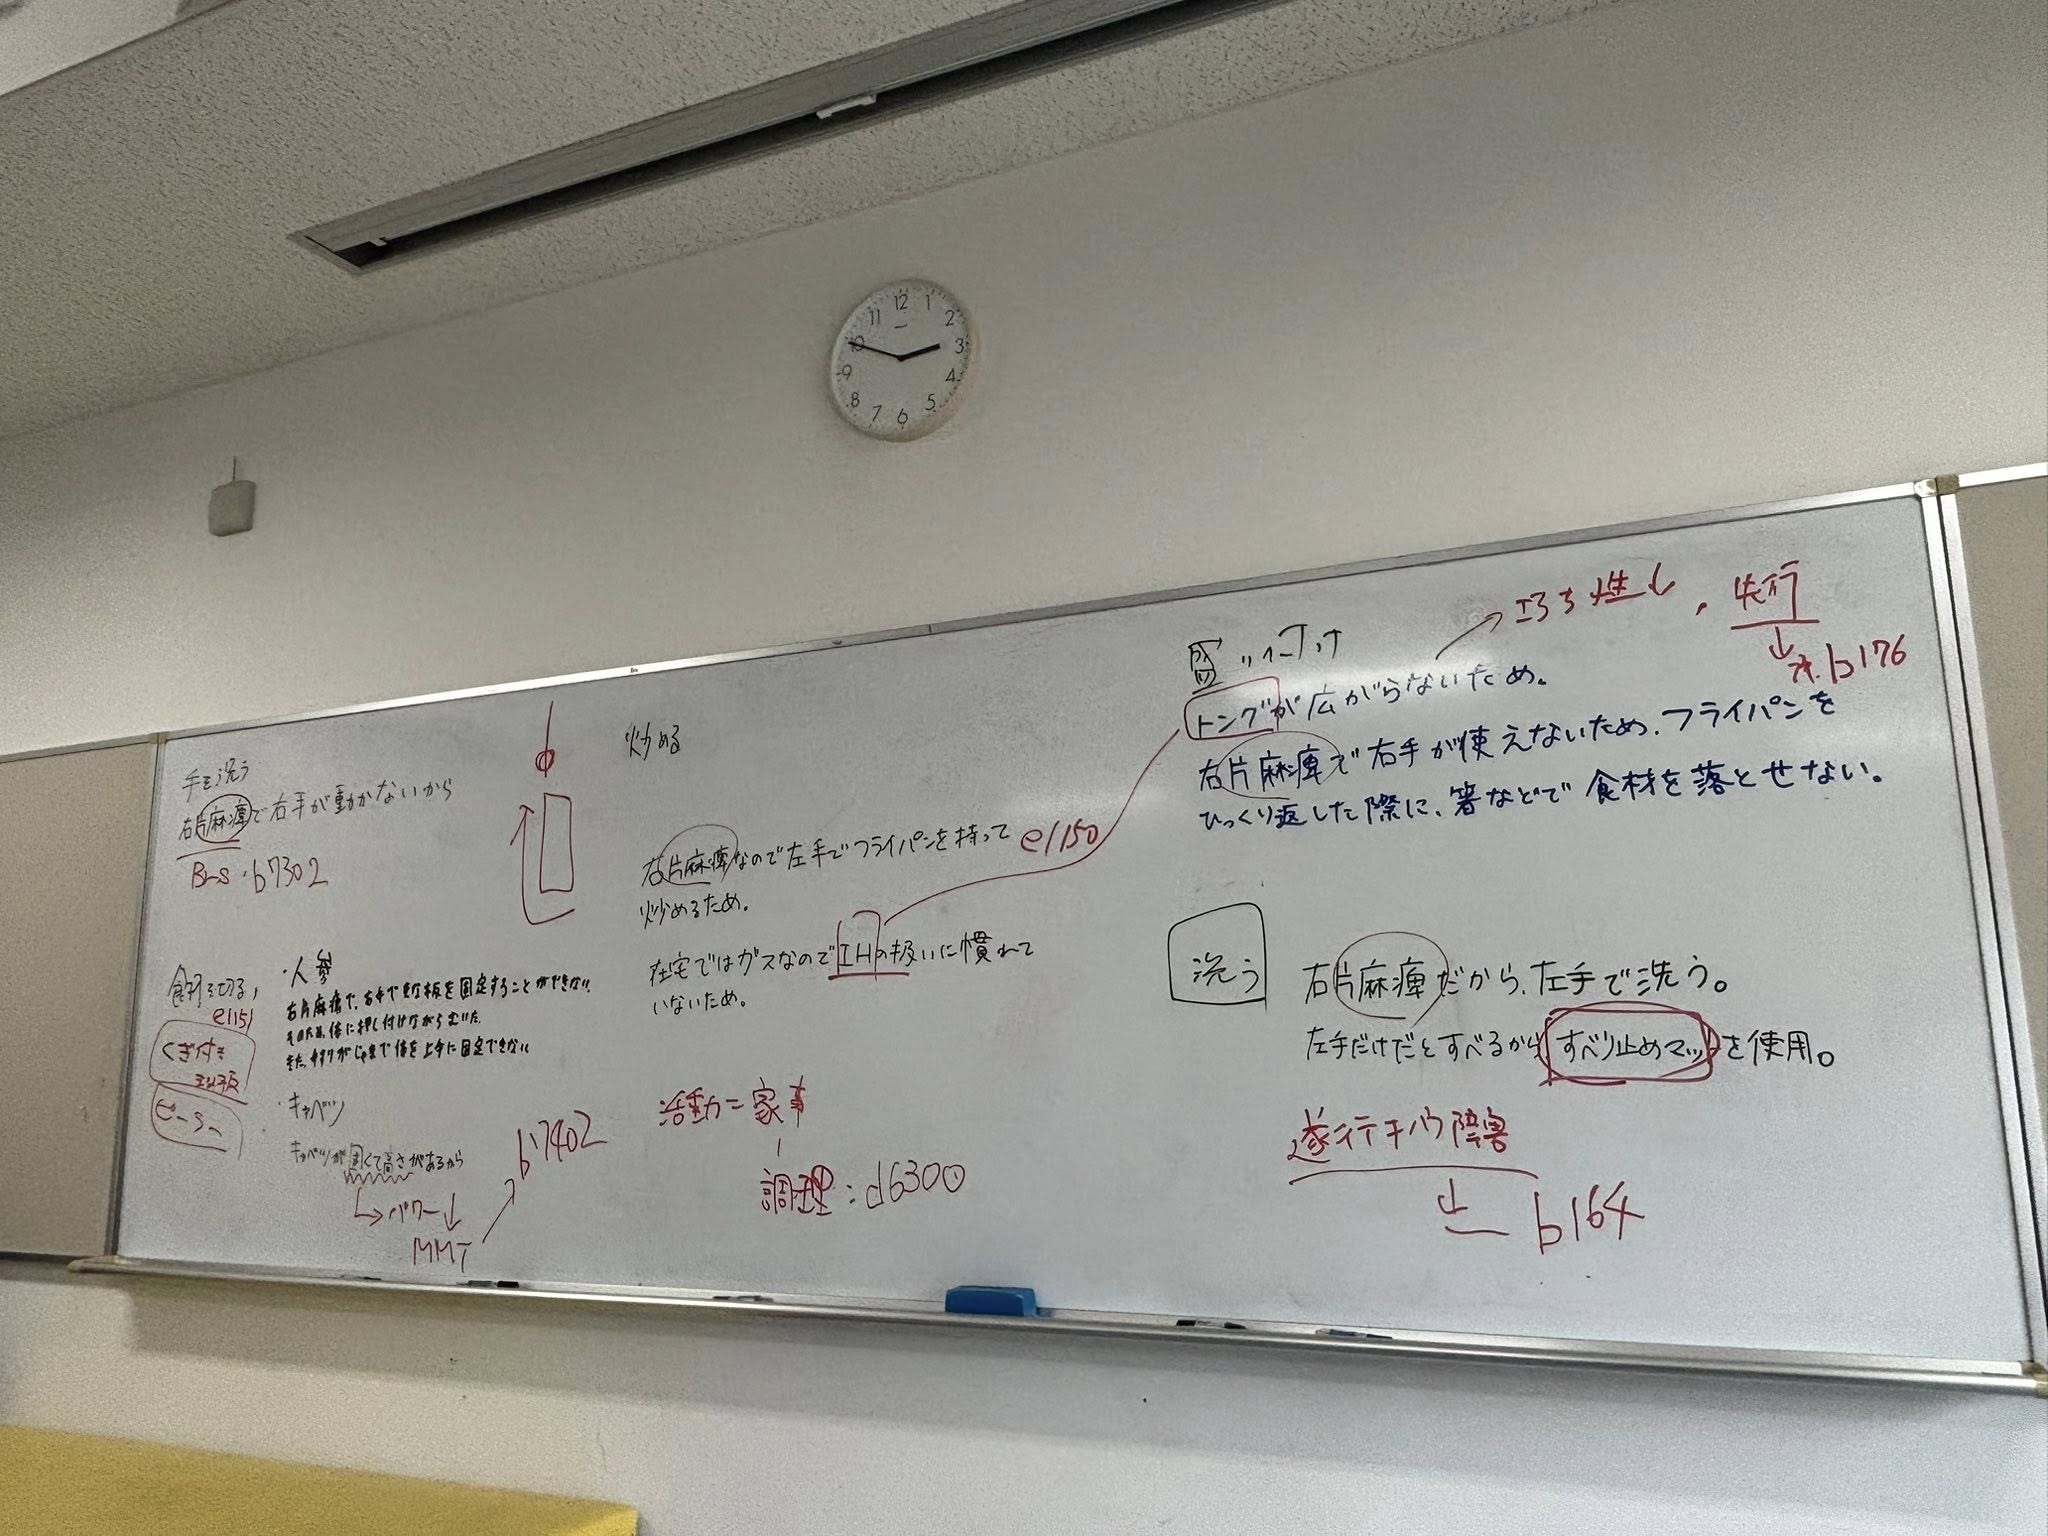 12
1
2
3
4
5
6
7
8
9
10
11
手を洗う
右片麻痺で右手が動かないから
BrS・b7302
食材を切る,
e1151
くぎ付き
まな板
ピーラー
・人参
右片麻痺で、右手でまな板を固定することができない。
そのため、体に押し付けながらむいた。
・キャベツ
キャベツが固くて高さがあるから
↳パワー↓
MMT
b7402
炒める
右片麻痺なので左手でフライパンを持って
炒めるため。
e1150
在宅ではガスなのでIHの扱いに慣れて
いないため。
活動=家事
調理:d6300
トングが広がらないため。
巧ち性↓, 失行
b176
右片麻痺で右手が使えないため、フライパンを
ひっくり返した際に、箸などで食材を落とせない。
洗う
右片麻痺だから、左手で洗う。
左手だけだとすべるからすべり止めマットを使用。
遂行キノウ障害
↓
b164